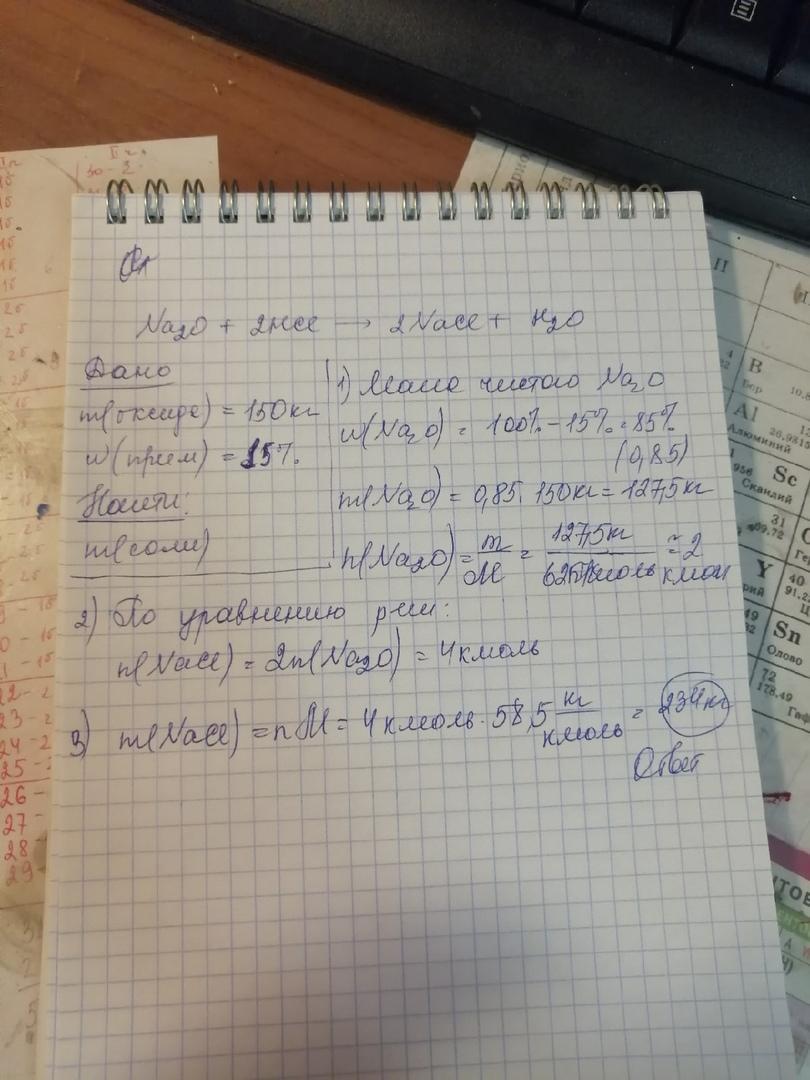 Na₂O + 2HCl → 2NaCl + H₂O
Дано
m(оксида) = 150кг
w(прим) = 15%
Найти:
m(соли)
1) Масса чистого Na₂O
w(Na₂O) = 100% - 15% = 85%
(0,85)
m(Na₂O) = 0,85 · 150кг = 127,5кг
n(Na₂O) = m/M = 127,5кг / 62 кг/кмоль ≈ 2 кмоль
2) По уравнению р-ии:
n(NaCl) = 2n(Na₂O) = 4кмоль
3) m(NaCl) = nM = 4кмоль · 58,5 кг/кмоль = 234кг
Ответ
II
B
Бор
10,8
Al
26,9815
Алюминий
Sc
Скандий
31
69,72
Y
40
91,2
49
Sn
Олово
72
178,49
Гаф
22 -
23 - 2
24 - 2
25 -
26 -
27 -
28 -
29